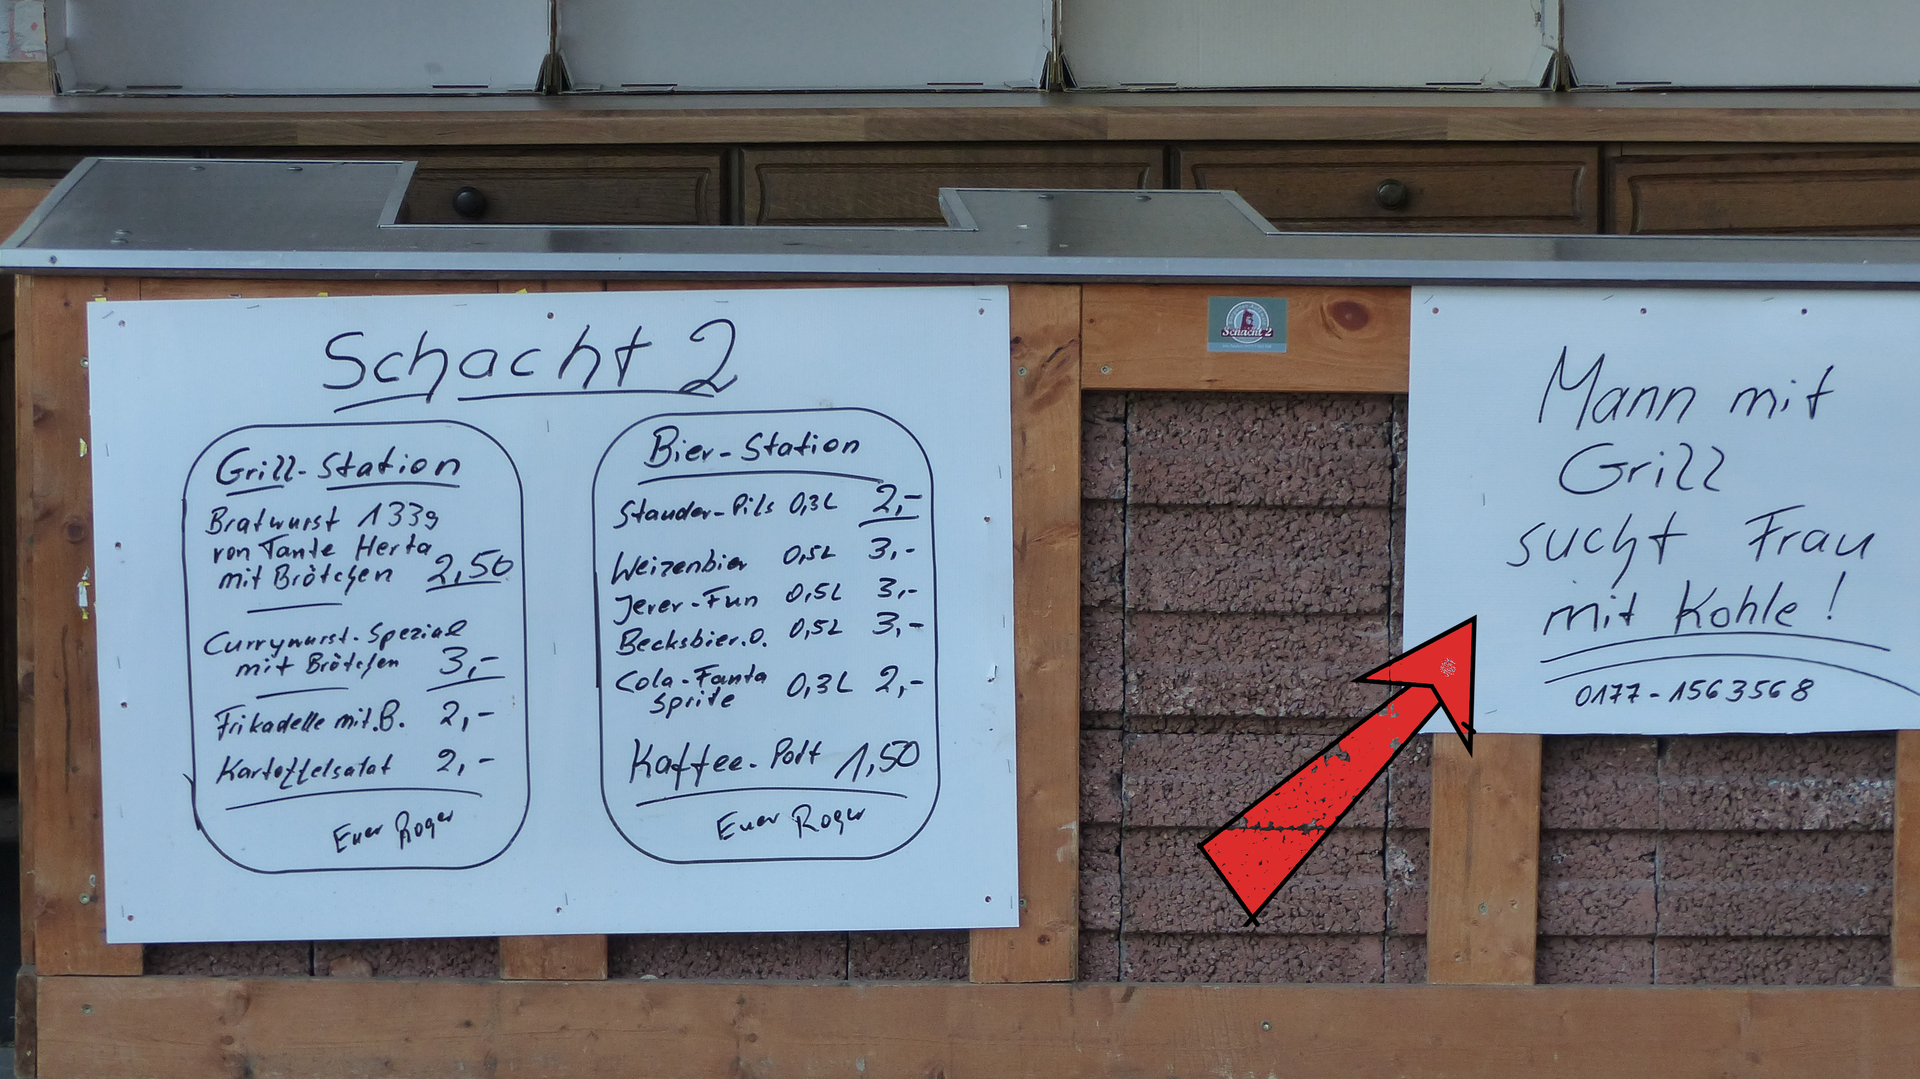 Schacht 2
Grill-Station
Bratwurst 133g
von Tante Herta
mit Brötchen 2,50
Currywurst-Spezial
mit Brötchen 3,-
Frikadelle mit.B. 2,-
Kartoffelsalat 2,-
Euer Roger
Bier-Station
Stauder-Pils 0,3L 2,-
Weizenbier 0,5L 3,-
Jever-Fun 0,5L 3,-
Becksbier.o. 0,5L 3,-
Cola-Fanta 0,3L 2,-
Sprite
Kaffee-Pott 1,50
Euer Roger
Schacht 2
Mann mit
Grill
sucht Frau
mit Kohle!
0177-1563568